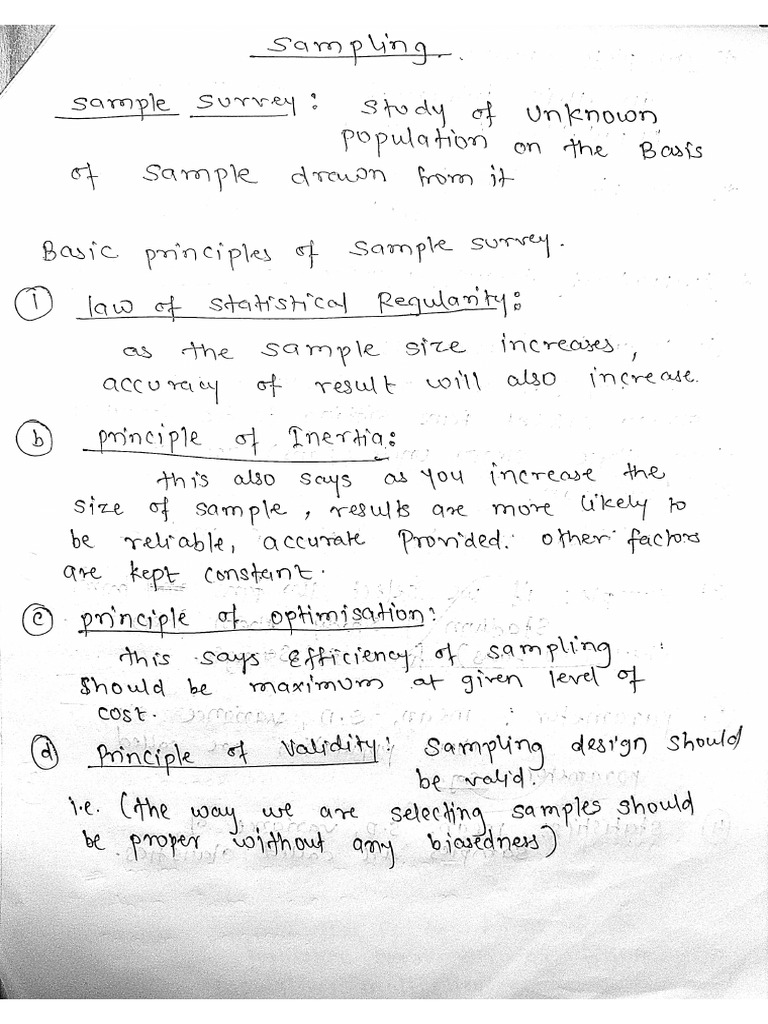 Sampling.
Sample Survey: Study of Unknown
population on the Basis
of Sample drawn from it
Basic principles of Sample Survey.
(i) law of statistical Regularity:
as the sample size increases,
accuracy of result will also increase.
(b) principle of Inertia:
this also says as you increase the
size of sample, results are more likely to
be reliable, accurate Provided. other factors
are kept constant.
(c) principle of optimisation:
this says Efficiency of sampling
should be maximum at given level of
cost.
(d) Principle of Validity: Sampling design should
be valid.
i.e. (the way we are selecting samples should
be proper without any biasedness)